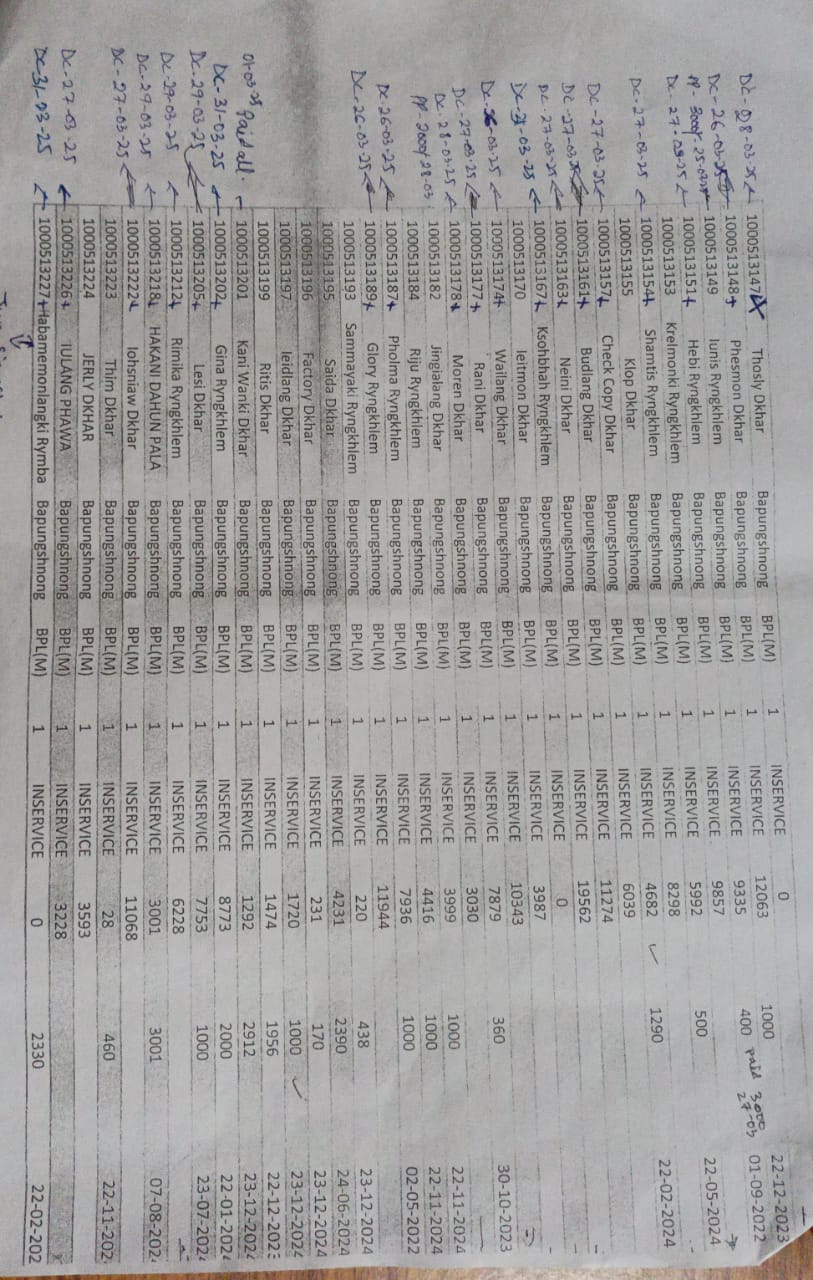 DC-28-03-25 1000513147 Thosly Dkhar Bapungshnong BPL(M) 1 INSERVICE 0
DC-26-03-25 1000513148 Phesmon Dkhar Bapungshnong BPL(M) 1 INSERVICE 12063 1000 22-12-2023
PP-3000/ 25-03-25 1000513149 Iunis Ryngkhlem Bapungshnong BPL(M) 1 INSERVICE 9335 400 paid 3000 27-03 01-09-2022
DC-27-03-25 1000513151 Hebi Ryngkhlem Bapungshnong BPL(M) 1 INSERVICE 9857
1000513153 Krelmonki Ryngkhlem Bapungshnong BPL(M) 1 INSERVICE 5992 500 22-05-2024
DC-27-03-25 1000513154 Shamtis Ryngkhlem Bapungshnong BPL(M) 1 INSERVICE 8298
1000513155 Klop Dkhar Bapungshnong BPL(M) 1 INSERVICE 4682 1290 22-02-2024
DC-27-03-25 1000513157 Check Copy Dkhar Bapungshnong BPL(M) 1 INSERVICE 6039
DC-27-03-25 1000513161 Budlang Dkhar Bapungshnong BPL(M) 1 INSERVICE 11274
DC-27-03-25 1000513163 Neini Dkhar Bapungshnong BPL(M) 1 INSERVICE 19562
DC-31-03-25 1000513167 Ksohbhah Ryngkhlem Bapungshnong BPL(M) 1 INSERVICE 0
1000513170 Ieitmon Dkhar Bapungshnong BPL(M) 1 INSERVICE 3987
DC-26-03-25 1000513174 Wailang Dkhar Bapungshnong BPL(M) 1 INSERVICE 10343
DC-27-03-25 1000513177 Rani Dkhar Bapungshnong BPL(M) 1 INSERVICE 7879 360 30-10-2023
DC-28-03-25 1000513178 Moren Dkhar Bapungshnong BPL(M) 1 INSERVICE 3030
PP-2000/ 28-03 1000513182 Jingialang Dkhar Bapungshnong BPL(M) 1 INSERVICE 3999 1000 22-11-2024
1000513184 Riju Ryngkhlem Bapungshnong BPL(M) 1 INSERVICE 4416 1000 22-11-2024
DC-26-03-25 1000513187 Pholma Ryngkhlem Bapungshnong BPL(M) 1 INSERVICE 7936 1000 02-05-2022
DC-26-03-25 1000513189 Glory Ryngkhlem Bapungshnong BPL(M) 1 INSERVICE 11944
1000513193 Sammayaki Ryngkhlem Bapungshnong BPL(M) 1 INSERVICE 220 438 23-12-2024
1000513195 Saida Dkhar Bapungshnong BPL(M) 1 INSERVICE 4231 2390 24-06-2024
1000513196 Factory Dkhar Bapungshnong BPL(M) 1 INSERVICE 231 170 23-12-2024
1000513197 Ieidlang Dkhar Bapungshnong BPL(M) 1 INSERVICE 1720 1000 23-12-2024
1000513199 Ritis Dkhar Bapungshnong BPL(M) 1 INSERVICE 1474 1956 22-12-2023
01-03-25 paid all. 1000513201 Kani Wanki Dkhar Bapungshnong BPL(M) 1 INSERVICE 1292 2912 23-12-2024
DC-31-03-25 1000513202 Gina Ryngkhlem Bapungshnong BPL(M) 1 INSERVICE 8773 2000 22-01-2024
DC-29-03-25 1000513205 Lesi Dkhar Bapungshnong BPL(M) 1 INSERVICE 7753 1000 23-07-2024
DC-29-03-25 1000513212 Rimika Ryngkhlem Bapungshnong BPL(M) 1 INSERVICE 6228
DC-27-03-25 1000513218 HAKANI DAHUN PALA Bapungshnong BPL(M) 1 INSERVICE 3001 3001 07-08-202
DC-27-03-25 1000513222 Iohsniaw Dkhar Bapungshnong BPL(M) 1 INSERVICE 11068
1000513223 Thim Dkhar Bapungshnong BPL(M) 1 INSERVICE 28 460 22-11-202
1000513224 JERLY DKHAR Bapungshnong BPL(M) 1 INSERVICE 3593
DC-27-03-25 1000513226 IULANG PHAWA Bapungshnong BPL(M) 1 INSERVICE 3228
DC-31-03-25 1000513227 Habamemonlangki Rymba Bapungshnong BPL(M) 1 INSERVICE 0 2330 22-02-202